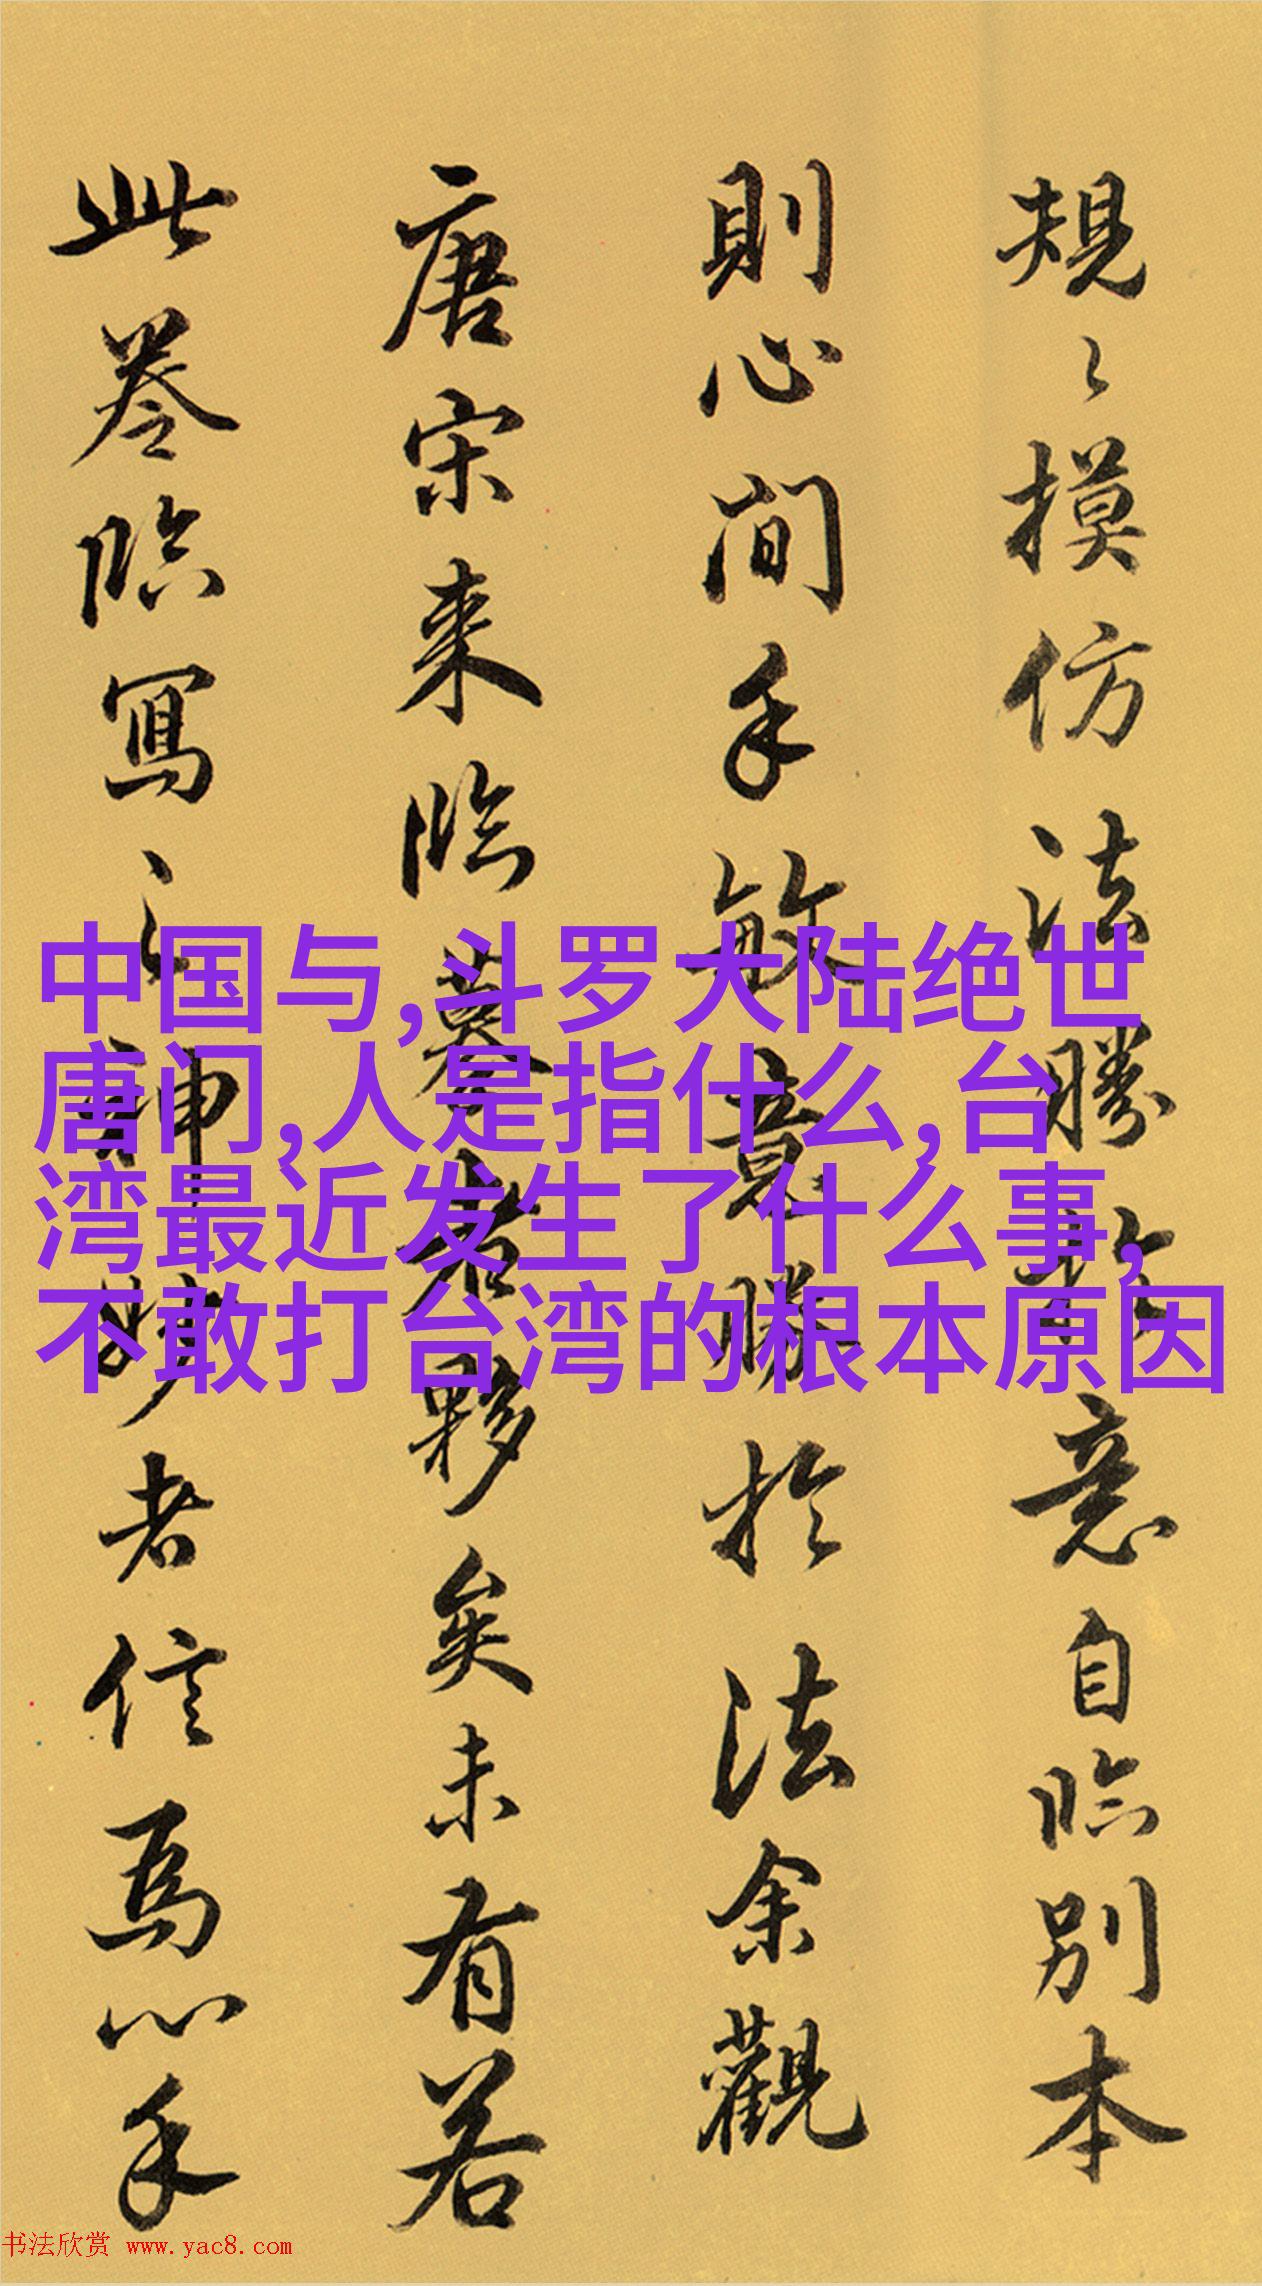 規〻摸仿法勝於意自臨別本
則心間手敏意勝於法余觀
唐宋来臨摹者夥矣未有若
此卷臨寫之神妙者信為心手
中国与,斗罗大陆绝世
唐门,人是指什么,台
湾最近发生了什么事,
不敢打台湾的根本原因
书法欣赏 www.yac8.com